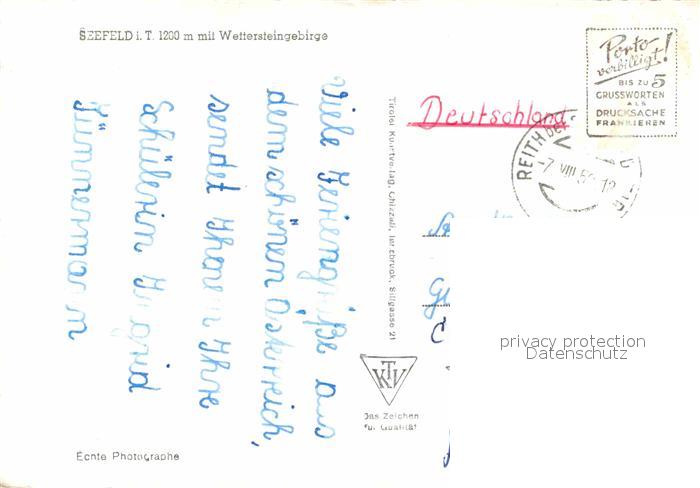 SEEFELD i. T. 1200 m mit Wettersteingebirge
Viele Feriengrüße aus
dem schönen Österreich,
sendet Ihnen Ihre
Schülerin Ingrid
Kümmermann
Echte Photographie
Tiroler Kunstverlag, Chizzali, Innsbruck, Sillgasse 21
KTV
Das Zeichen
für Qualität
Porto
verbilligt!
BIS ZU 5
GRUSSWORTEN
ALS
DRUCKSACHE
FRANKIEREN
Deutschland
REITH BEI
-7. VIII 59-12
privacy protection
Datenschutz